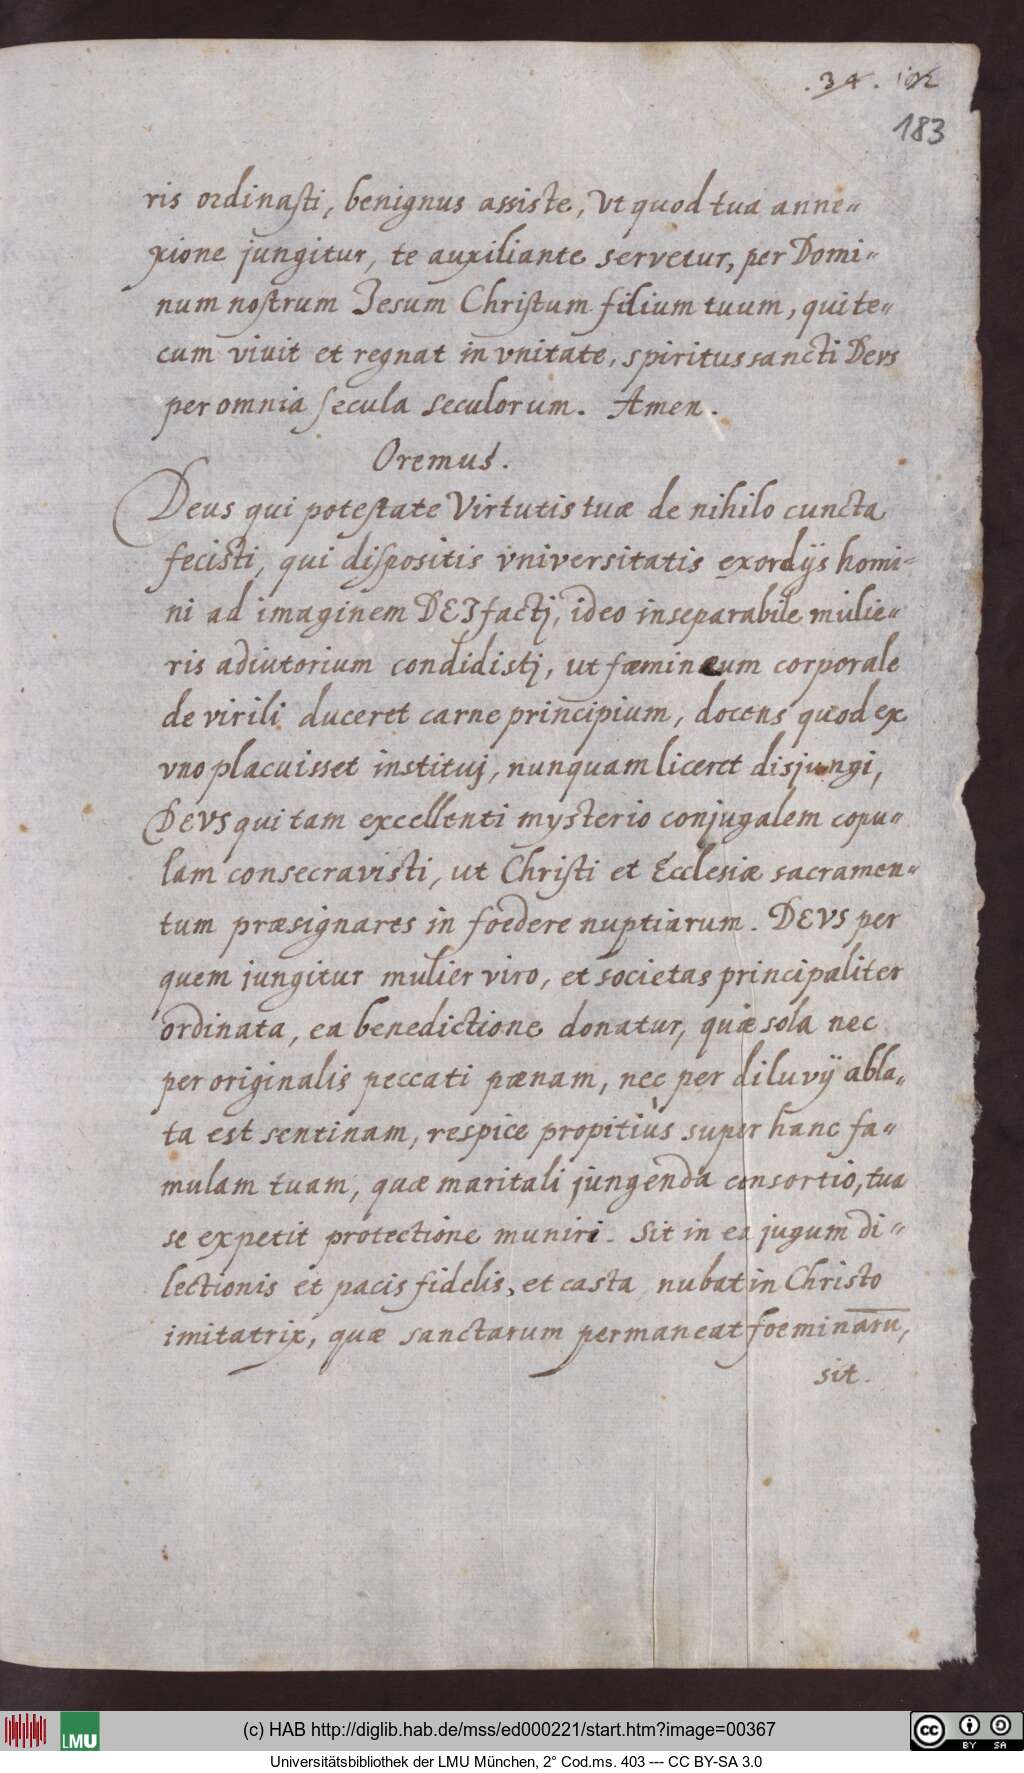 .34.
183
ris ordinasti, benignus assiste, Vt quod tua anne„
xione jungitur, te auxiliante servetur, per Domi„
num nostrum Jesum Christum filium tuum, qui te„
cum viuit et regnat in vnitate, spiritus sancti Devs
per omnia secula seculorum. Amen.
Oremus.
Deus qui potestate Virtutis tuæ de nihilo cuncta
fecisti, qui dispositis vniversitatis exordijs homi„
ni ad imaginem DEI factj, ideo inseparabile mulie„
ris adiutorium condidistj, ut fæmineum corporale
de virili duceret carne principium, docens quod ex
vno placuisset instituj, nunquam liceret disjungi,
DEVS qui tam excellenti mysterio conjugalem copu„
lam consecravisti, ut Christi et Ecclesiæ sacramen„
tum præsignares in foedere nuptiarum. DEVS per
quem jungitur mulier viro, et societas principaliter
ordinata, ea benedictione donatur, quæ sola nec
per originalis peccati pænam, nec per diluvij abla„
ta est sentinam, respice propitiùs super hanc fa„
mulam tuam, quæ maritali jungenda consortio, tua
se expetit protectione muniri. Sit in ea jugum di„
lectionis et pacis fidelis, et casta nubat in Christo
imitatrix, quæ sanctarum permaneat foeminarū,
sit.
(c) HAB http://diglib.hab.de/mss/ed000221/start.htm?image=00367
LMU
CC BY SA
Universitätsbibliothek der LMU München, 2° Cod.ms. 403 --- CC BY-SA 3.0